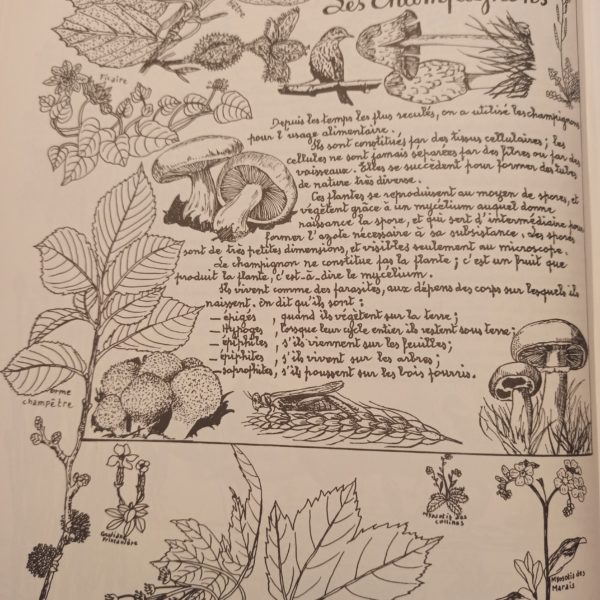 Les Champignons
Ficaire
Depuis les temps les plus reculés, on a utilisé les champignons
pour l'usage alimentaire.
Ils sont constitués par des tissus cellulaires ; les
cellules ne sont jamais séparées par des fibres ou par des
vaisseaux. Elles se succèdent pour former des tubes
de nature très diverse.
Ces plantes se reproduisent au moyen de spores, et
végètent grâce à un mycélium auquel donne
naissance la spore, et qui sert d'intermédiaire pour
former l'azote nécessaire à sa subsistance. Les spores
sont de très petites dimensions, et visibles seulement au microscope.
Le champignon ne constitue pas la plante ; c'est un fruit que
produit la plante, c'est-à-dire le mycélium.
Ils vivent comme des parasites, aux dépens des corps sur lesquels ils
naissent. On dit qu'ils sont :
_ épigés , quand ils végètent sur la terre ;
_ Hypogés , lorsque leur cycle entier ils restent sous terre ;
_ épiphites , s'ils viennent sur les feuilles ;
_ épiphites , s'ils vivent sur les arbres ;
_ saprophites , s'ils poussent sur les bois pourris.
orme
champêtre
Printanière
Myosotis des
collines
Myosotis des
Marais